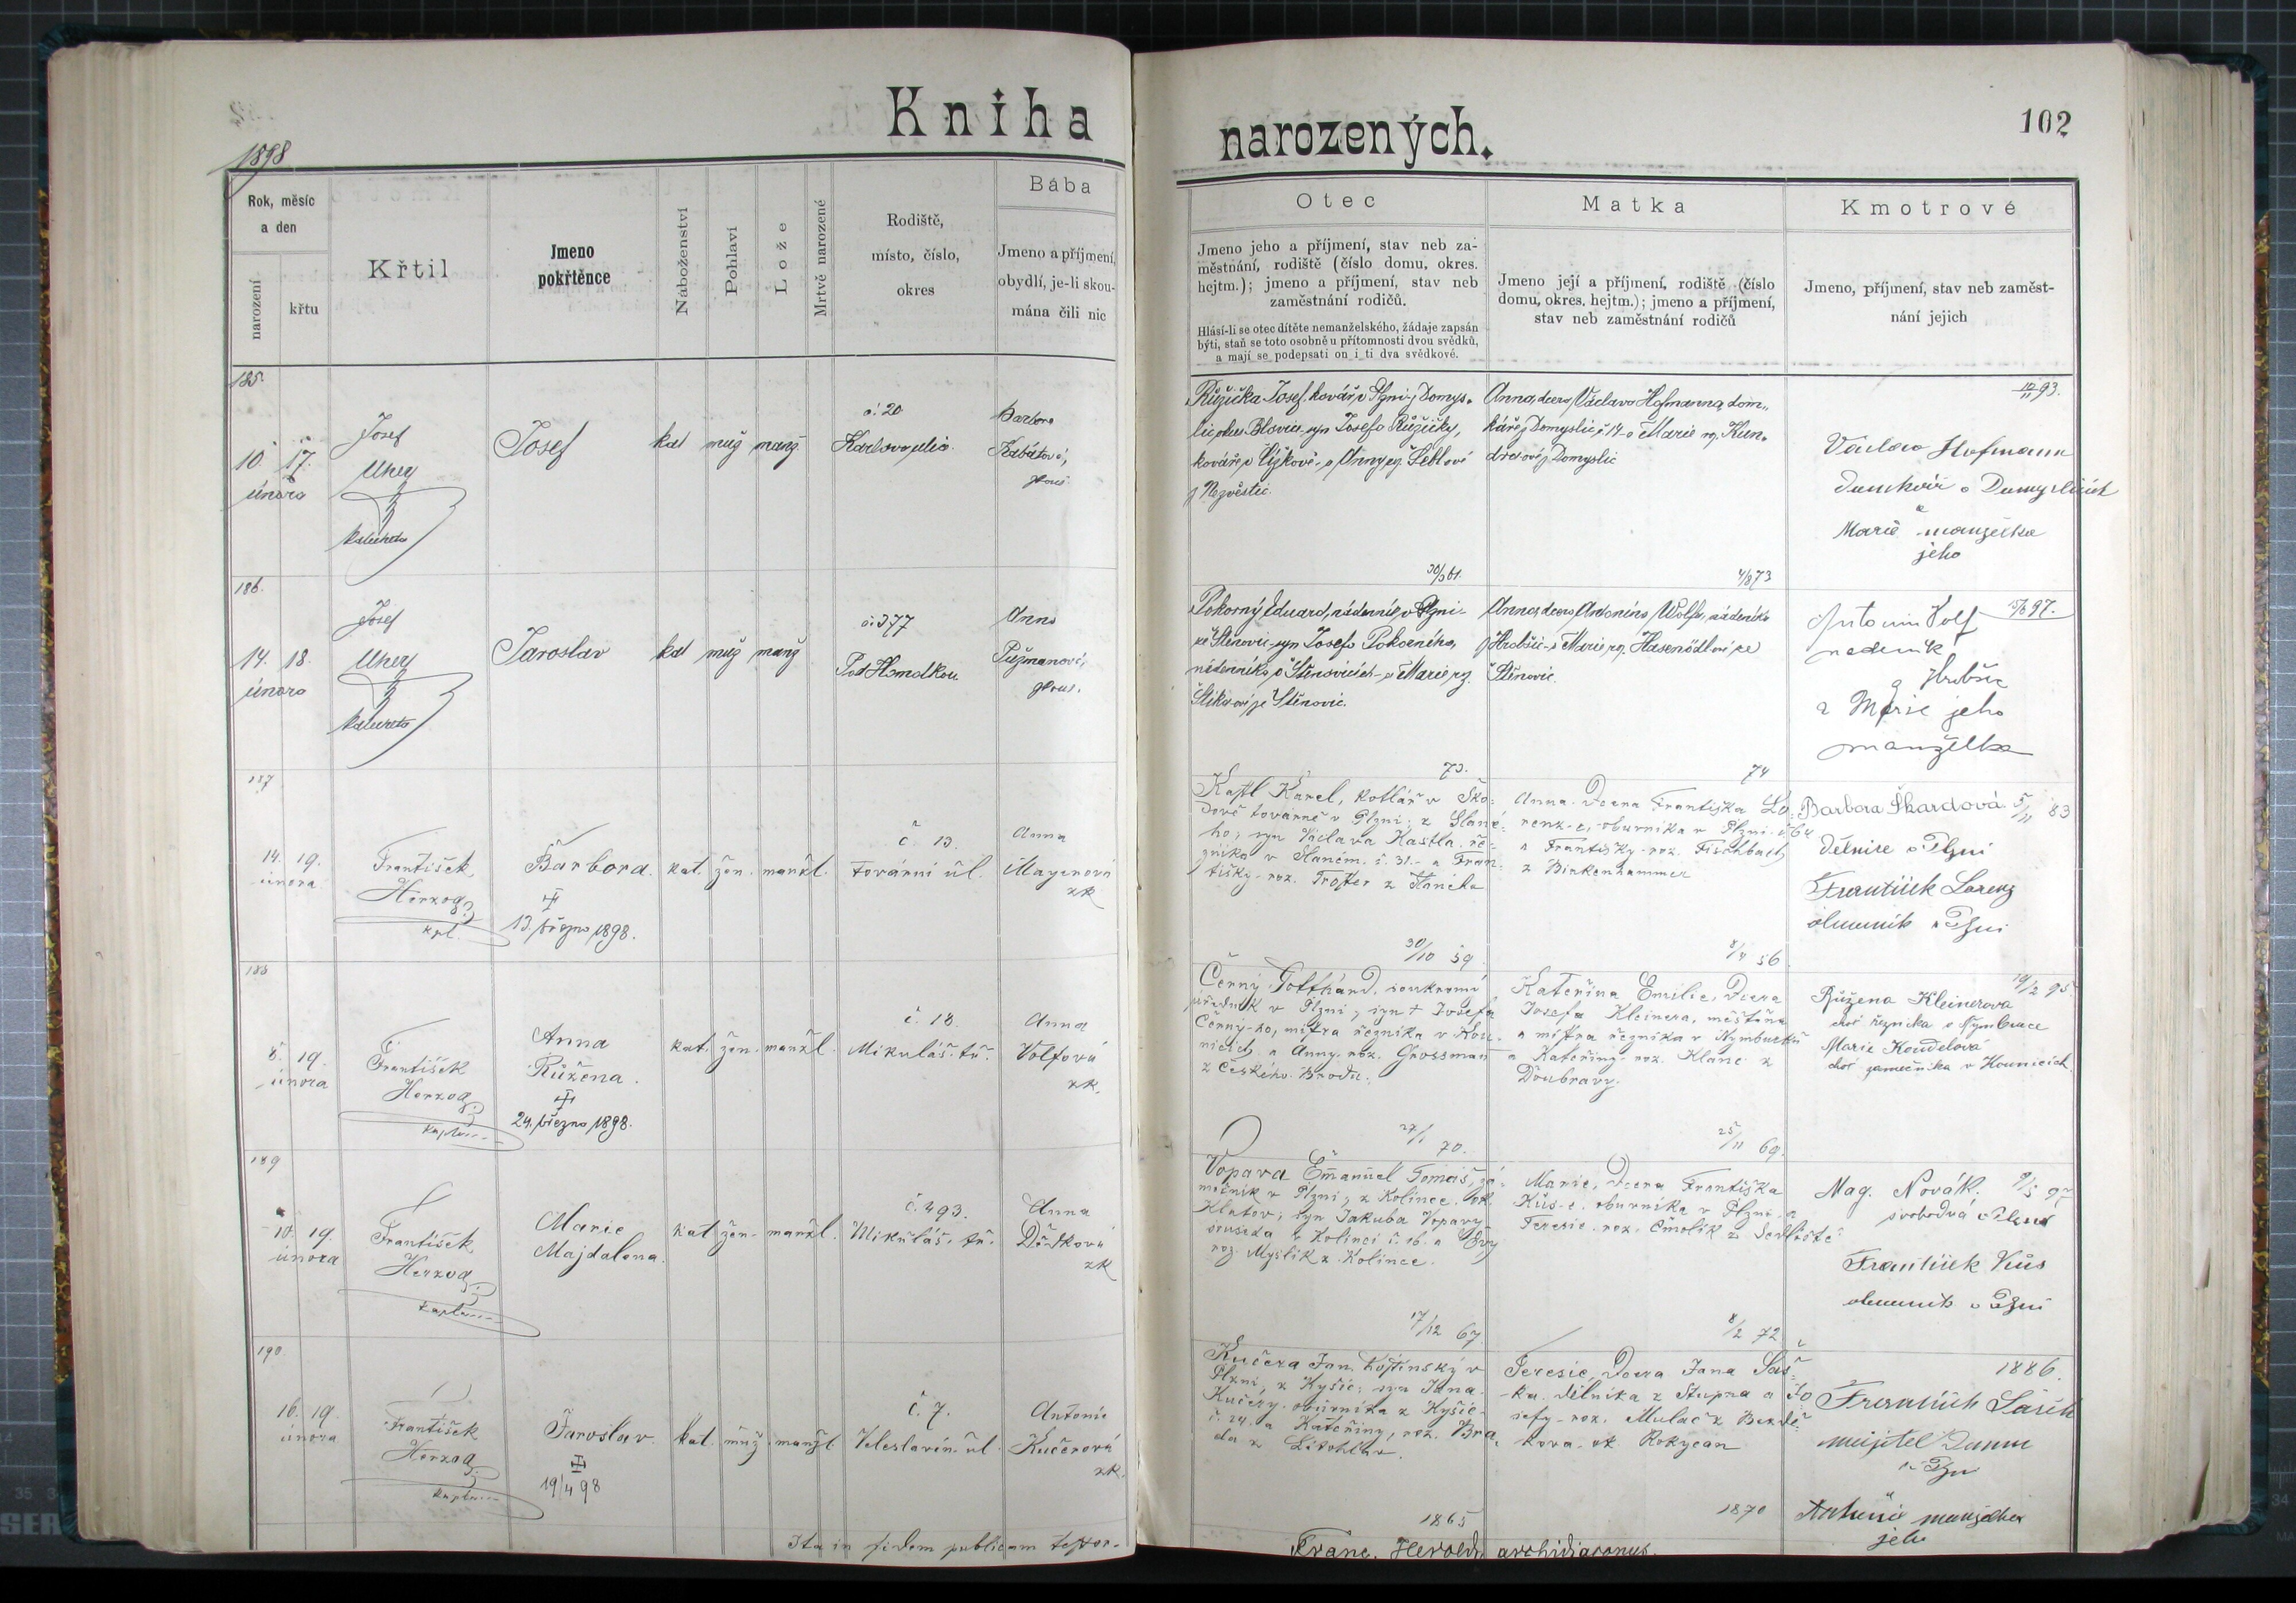 Kniha
narozených.
102
1898
Rok, měsíc
a den
narození
křtu
Křtil
Jmeno
pokřtěnce
Naboženství
Pohlaví
Lože
Mrtvě narozené
Rodiště,
místo, číslo,
okres
Bába
Jmeno a příjmení,
obydlí, je-li skou-
mána čili nic
Otec
Jmeno jeho a příjmení, stav neb za-
městnání, rodiště (číslo domu, okres.
hejtm.); jmeno a příjmení, stav neb
zaměstnání rodičů.
Hlásí-li se otec dítěte nemanželského, žádaje zapsán
býti, staň se toto osobně u přítomnosti dvou svědků,
a mají se podepsati on i ti dva svědkové.
Matka
Jmeno její a příjmení, rodiště (číslo
domu, okres. hejtm.); jmeno a příjmení,
stav neb zaměstnání rodičů
Kmotrové
Jmeno, příjmení, stav neb zaměst-
nání jejich
185.
10. 17.
února
Josef
Uhey
Josef
kat muž manž.
č. 20
Karlova ulice
Barbora
zkouš.
Růžička Josef, kovář v Plzni z Domys-
lic okres Blovice, syn Josefa Růžičky,
kováře v Lížkově a Anny rz. Šeblové
z Nezvěstic.
30/3 61.
Anna, dcera Václava Hofmanna, dom-
káře z Domyslic č 14 a Marie rz. Kun-
dratové z Domyslic
4/8 73
93.
Václav Hofmann
Domkář v Domyslicích
a
Marie manželka
jeho
186.
14. 18.
února
Josef
Uhey
Jaroslav
kat muž manž
č. 377
Pod Homolkou
Anna
zkouš.
Pokorný Eduard, nádenník v Plzni
ze Štěnovic, syn Josefa Pokorného,
nádenníka v Štěnovicích a Marie rz.
ze Štěnovic.
73.
Anna, dcera Antonína Wolfa, nádeníka
z Hrobšic a Marie rz. Hasenödlové ze
Štěnovic.
74
97.
Antonin Volf
nadeník
z
a Marie jeho
manželka
187
14. 19.
února
František
Herzog
kpl.
Barbora.
13. března 1898.
kat. žen. manžl.
č. 13.
Tovární ul.
Anna
Mayerová
zk
Kastl Karel, kotlář v Ško-
dově továrně v Plzni; z Slané-
ho; syn Václava Kastla, ře-
zníka v Slaném č. 31. a Fran-
tišky roz. Troster z
30/10 59
Anna. Dcera Františka Lo-
renz-e, oburníka v Plzni č 64
a Františky roz. Fischbach
z Birkenhammer
8/4 56
Barbora Škardová 5/11 83
Dělnice v Plzni
František Lorenz
v Plzni
188
8. 19.
února
František
Herzog
Anna
Růžena.
24. března 1898.
kat. žen. manžl.
č. 18.
Mikuláš. tř.
Anna
Volfová
zk.
Černý Gotthard, soukromý
úředník v Plzni; syn † Josefa
Černý-ho, mistra řezníka v Kou-
nicích a Anny roz. Grossman
z Českého Brodu.
27/1 70.
Kateřina Emilie, Dcera
Josefa Kleinera, měšťana
a mistra řezníka v Nymburku
a Kateřiny roz. Klanc z
Doubravy.
25/11 69.
19/2 95
Růžena Kleinerova
choť řezníka v Nymburce
Marie Koudelová
choť zámečníka v Kounicích
189
10. 19.
února
František
Herzog
Marie
Majdalena.
kat žen. manžl.
č. 493.
Mikuláš. tř.
Anna
zk
Vopava Emanuel Tomáš, zá-
mečník v Plzni; z Kolince. ok.
Klatov; syn Jakuba Vopavy
souseda z Kolinci č. 16. a Evy
roz. Myslík z Kolince.
17/12 67.
Marie, Dcera Františka
Kůs-e. oburníka v Plzni a
Teresie roz. Čmolík z
8/2 72
Mag. Novák. 9/5 97
svobodná
František Kůs
v Plzni
190
16. 19.
února
František
Herzog
Jaroslav.
19/4 98
kat. muž manžl
č. 7.
Veleslavín. ul.
Antonie
Kučerová
zk.
Kučera Jan, hostinský v
Plzni, z Kyšic; syn Jana
Kučery, oburníka z Kyšic
č. 24. a Kateřiny, roz. Bra-
da z Litohlav.
1865
Teresie, Dcera Jana Šaš-
ka. dělníka z Stupna a Jo-
sefy roz. Mulač z Bezdě-
kova. ok. Rokycan
1870
1886.
František Šašek
majitel Domu
v Plzni
manželka
jeho
Ita in fidem publicam testor.
Franc. Herold, archidiaconus.